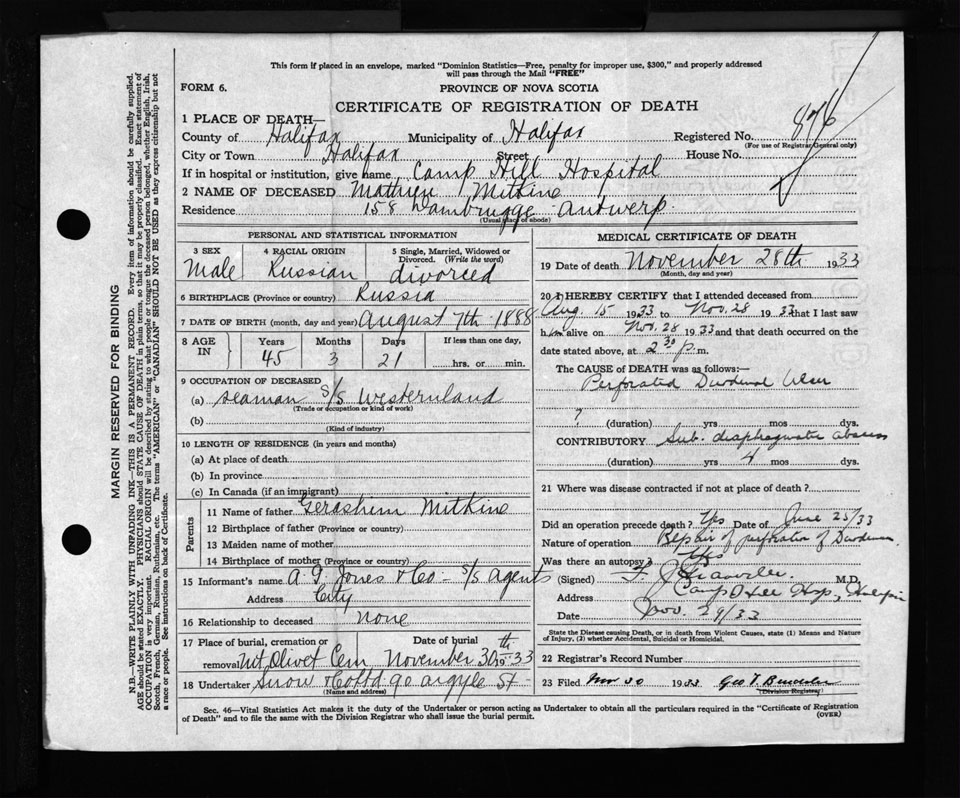 This form if placed in an envelope, marked "Dominion Statistics—Free, penalty for improper use, $300," and properly addressed
will pass through the Mail "FREE"
FORM 6.
PROVINCE OF NOVA SCOTIA
CERTIFICATE OF REGISTRATION OF DEATH
1 PLACE OF DEATH—
County of Halifax Municipality of Halifax Registered No. 876
(For use of Registrar General only)
City or Town Halifax Street House No.
If in hospital or institution, give name Camp Hill Hospital
2 NAME OF DECEASED Mathieu Mitkine
Residence 158 Dambrugge Antwerp
(Usual place of abode)
PERSONAL AND STATISTICAL INFORMATION
3 SEX 4 RACIAL ORIGIN 5 Single, Married, Widowed or
Divorced. (Write the word)
Male Russian divorced
6 BIRTHPLACE (Province or country) Russia
7 DATE OF BIRTH (month, day and year) August 7th 1888
8 AGE IN Years Months Days If less than one day,
45 3 21 hrs. or min.
9 OCCUPATION OF DECEASED
(a) seaman S/S Westernland
(Trade or occupation or kind of work)
(b)
(Kind of industry)
10 LENGTH OF RESIDENCE (in years and months)
(a) At place of death
(b) In province
(c) In Canada (if an immigrant)
Parents
11 Name of father Gerashim Mitkine
12 Birthplace of father (Province or country)
13 Maiden name of mother
14 Birthplace of mother (Province or country)
15 Informant's name A. G. Jones & Co - S/S agents
Address City
16 Relationship to deceased none
17 Place of burial, cremation or Date of burial
removal Mt Olivet Cem November 30th 1933
18 Undertaker Snow & Co Ltd 90 Argyle St
(Name and address)
MEDICAL CERTIFICATE OF DEATH
19 Date of death November 28th 1933
(Month, day and year)
20 I HEREBY CERTIFY that I attended deceased from
Aug. 15 1933 to Nov. 28 1933 that I last saw
him alive on Nov. 28 1933 and that death occurred on the
date stated above, at 2 30 p.m.
The CAUSE OF DEATH was as follows:—
Perforated Duodenal Ulcer
?
(duration) yrs mos dys.
CONTRIBUTORY Sub. diaphragmatic abscess
(duration) yrs 4 mos dys.
21 Where was disease contracted if not at place of death?
Did an operation precede death? Yes Date of June 25/33
Nature of operation Repair of perforation of Duodenum
Was there an autopsy? Yes
(Signed) M.D.
Address Camp Hill Hosp, Halifax
Date Nov. 29/33
State the Disease causing Death, or in death from Violent Causes, state (1) Means and Nature
of Injury, (2) whether Accidental, Suicidal or Homicidal.
22 Registrar's Record Number
23 Filed Nov 30 1933 Geo T
(Division Registrar)
Sec. 46—Vital Statistics Act makes it the duty of the Undertaker or person acting as Undertaker to obtain all the particulars required in the "Certificate of Registration
of Death" and to file the same with the Division Registrar who shall issue the burial permit.
(OVER)
MARGIN RESERVED FOR BINDING
N.B.—WRITE PLAINLY WITH UNFADING INK—THIS IS A PERMANENT RECORD. Every item of information should be carefully supplied.
AGE should be stated EXACTLY. PHYSICIANS should STATE CAUSE OF DEATH in plain terms, so that it may be properly classified. Exact statement of
OCCUPATION is very important. RACIAL ORIGIN will be described by stating to what people or tongue the deceased person belonged, whether English, Irish,
Scotch, French, German, Russian, Ruthenian, etc. The terms "AMERICAN" or "CANADIAN" SHOULD NOT BE USED as they express citizenship but not
a race or people. See instructions on back of Certificate.